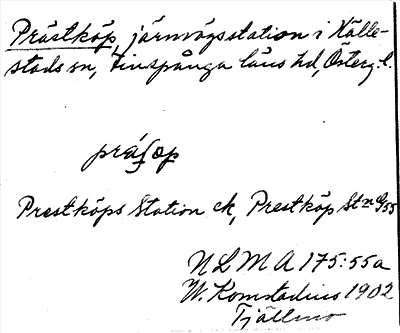 Prästköp, järnvägsstation i Hälle-
stads sn, Finspånga läns hd, Österg. l.
Prestköps Station ek, Prestköp Stn G55
NLMA 175:55a
W. Komstadius 1902
Tjällmo